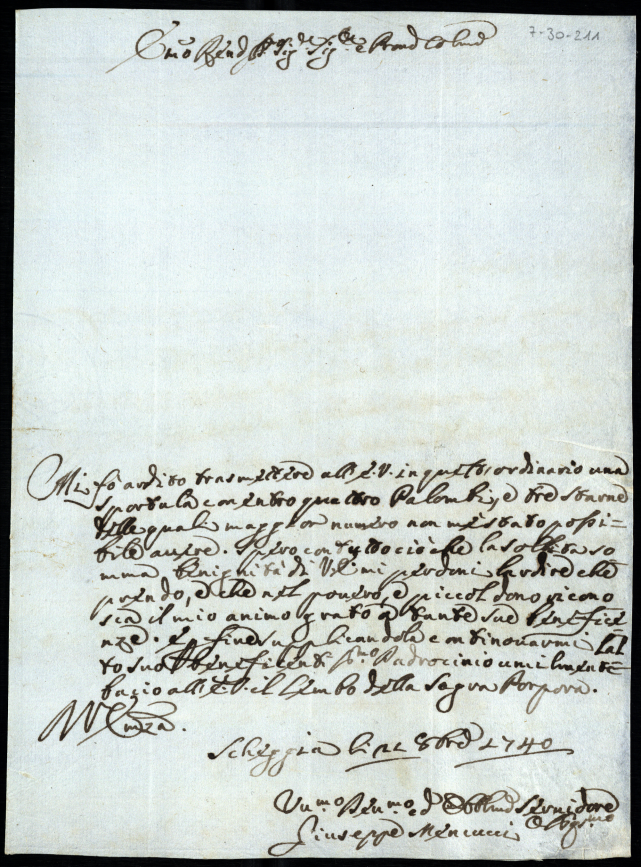 7-30-211
Emo Rend Sig. Sig. e Pron Colmo
Mi fò ardito trasmettere all'E.V. in questo ordinario una
sportula con entro quattro Palombi, e tre starne
delle quali maggior numero non m'è stato possi-
bile avere. Spero con tutto ciò che la solita so
mma benignità di V.E. mi perdoni l'ardire che
prendo, e che nel povero, e piccol dono ricono
sca il mio animo grato a tante sue beneficie
nze. e fine supplicandola continovarmi l'al
to suo beneficenti smo Padrocinio umilmente
bacio all'E.V. il Lembo della Sagra Porpora.
V Emza.
Scheggia li 8bre 1740
Vu.mo Reu.mo ed Obblmo Servidore
Obbgsmo
Giuseppe Mencucci